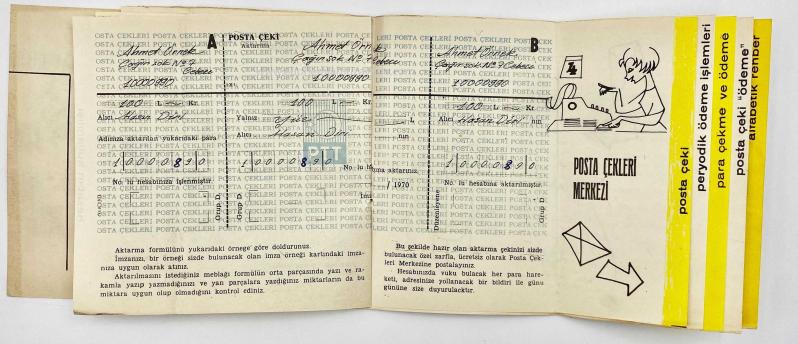 A
POSTA ÇEKİ
Aktarma
Ahmet Örnek
10000890
100 L. Kr.
Alıcı Hasan Diri
Adınıza aktarılan yukarıdaki para
10000890
No. lu hesabınıza işlenmiştir.
Grup D.
Ahmet Örnek
10000890
100 L. Kr.
Yalnız Yüz
Alıcı Hasan Diri
PTT
10000890
No. lu hesabına aktarınız.
/ 1970
Grup D.
B
Ahmet Örnek
10000890
100 L. Kr.
Alıcı Hasan Diri nın
10000890
No. lu hesabına aktarılmıştır.
Düzenleyene
Grup D.
POSTA ÇEKLERİ POSTA ÇEKLERİ POSTA ÇEKLERİ
Aktarma formülünü yukarıdaki örneğe göre doldurunuz.
İmzanızı, bir örneği sizde bulunacak olan imza örneği kartındaki imza-
nıza uygun olarak atınız.
Aktarılmasını istediğiniz meblağı formülün orta parçasında yazı ve ra-
kamla yazıp yazmadığınızı ve yan parçalara yazdığınız miktarların da bu
miktara uygun olup olmadığını kontrol ediniz.
Bu şekilde hazır olan aktarma çekinizi sizde
bulunacak özel zarfla, ücretsiz olarak Posta Çek-
leri Merkezine postalayınız.
Hesabınızda vuku bulacak her para hare-
keti, adresinize yollanacak bir bildiri ile günü
gününe size duyurulacaktır.
4
POSTA ÇEKLERİ
MERKEZİ
posta çeki
peryodik ödeme işlemleri
para çekme ve ödeme
posta çeki "ödeme"
alfabetik rehber